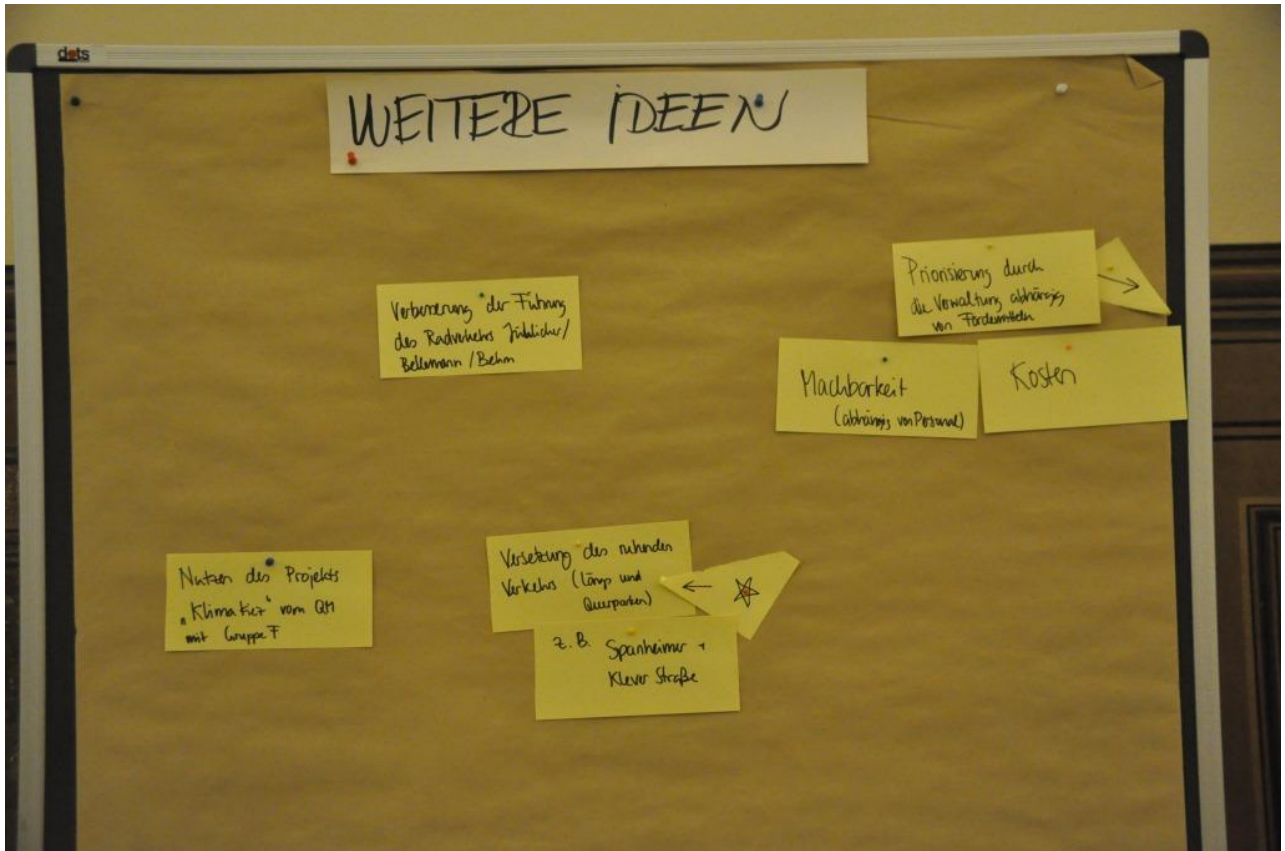 dots
WEITERE IDEEN
Verbesserung der Führung
des Radverkehrs Jülicher/
Bellermann/Behm
Priorisierung durch
die Verwaltung abhängig
von Fördermitteln
→
Machbarkeit
(abhängig von Personal)
Kosten
Nutzen des Projekts
„KlimaKiez“ vom QM
mit Gruppe F
Versetzung des ruhenden
Verkehrs (Längs und
Querparken)
←
z.B. Spanheimer +
Klever Straße